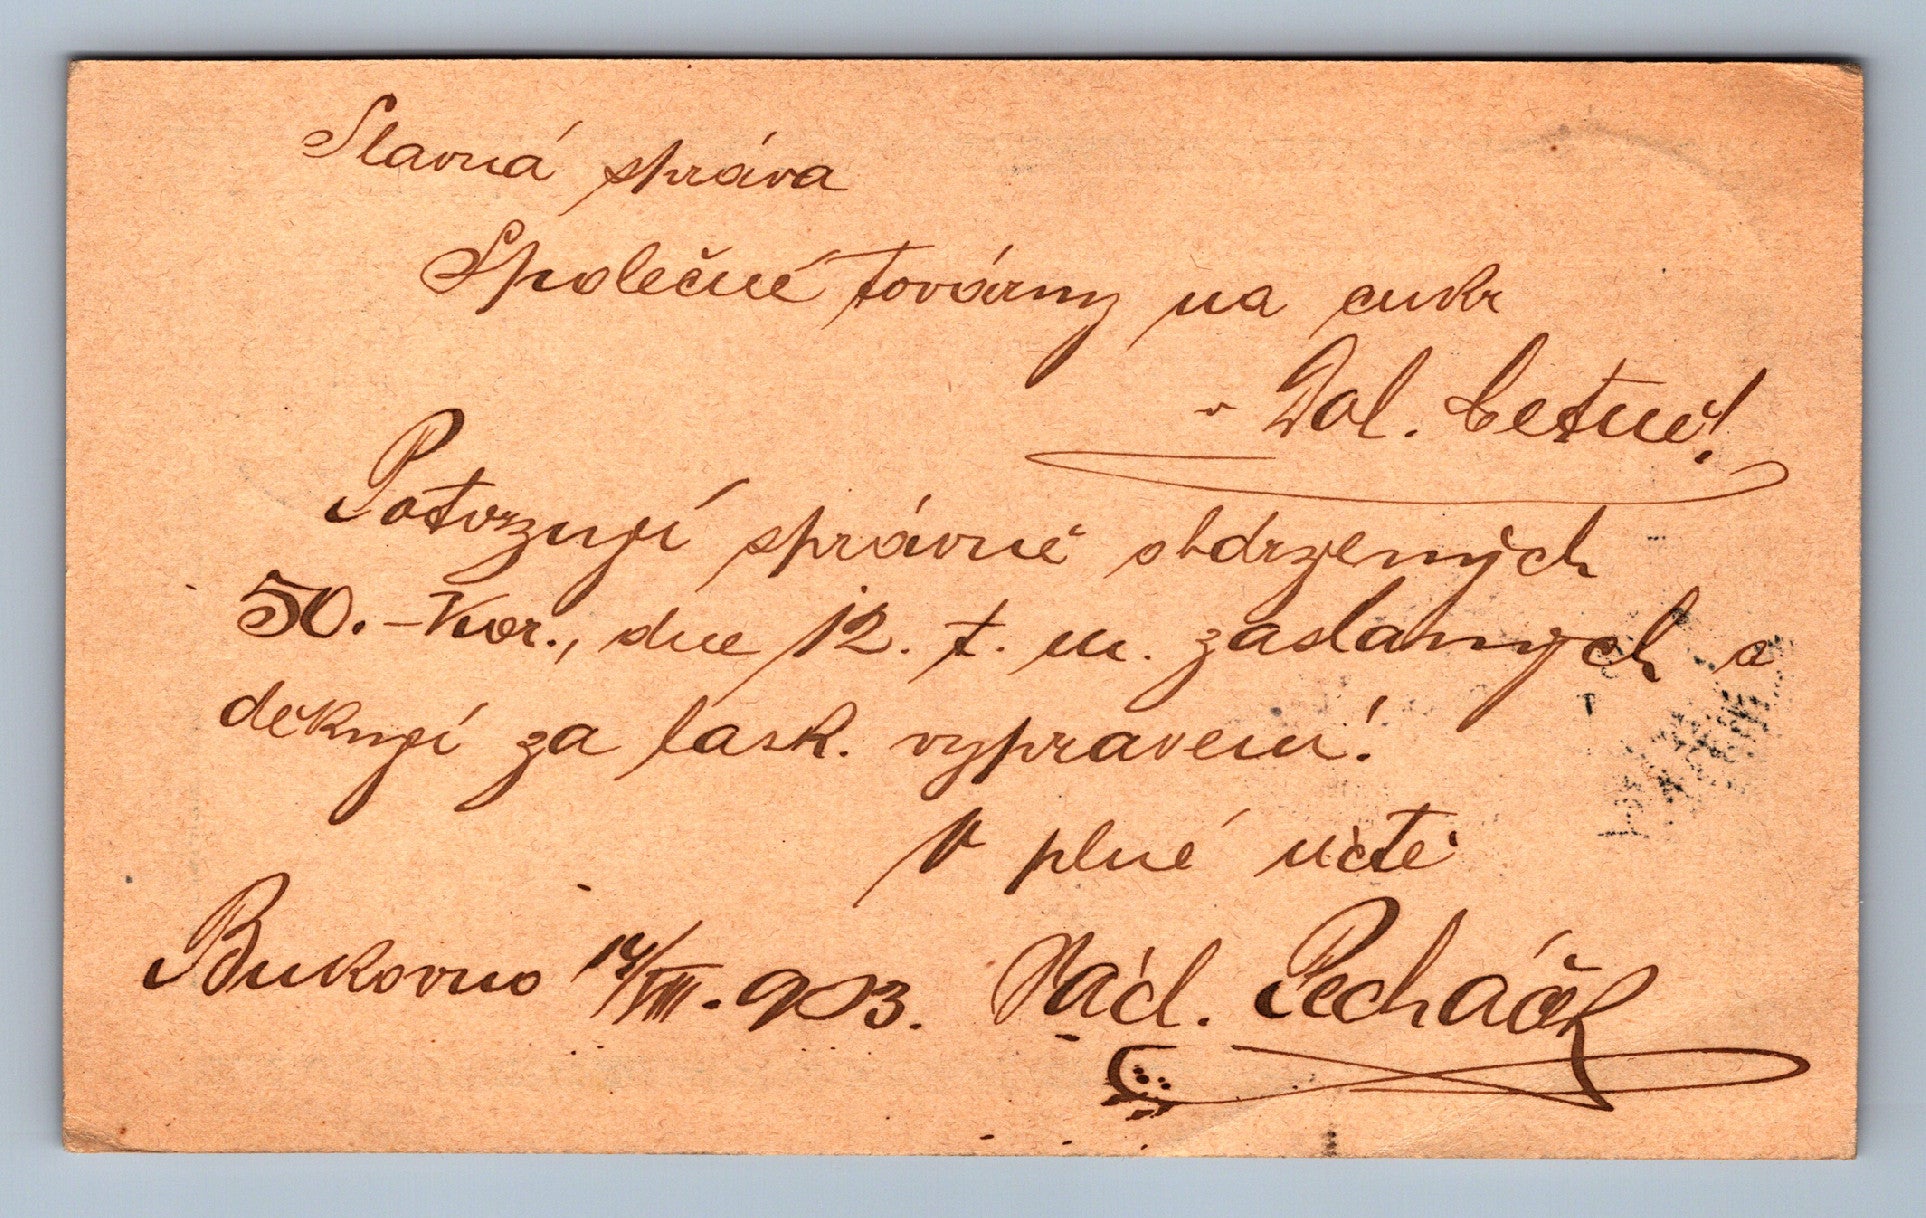 Slavná správa
Společné továrny na cukr
v Dol. Cetně!
Potvrzuji správně obdržených
50.-Kor., dne 12. t. m. zaslaných a
děkuji za lask. vypravení!
V plné úctě
Bukovno 14/VIII. 903. Vád. Pecháček